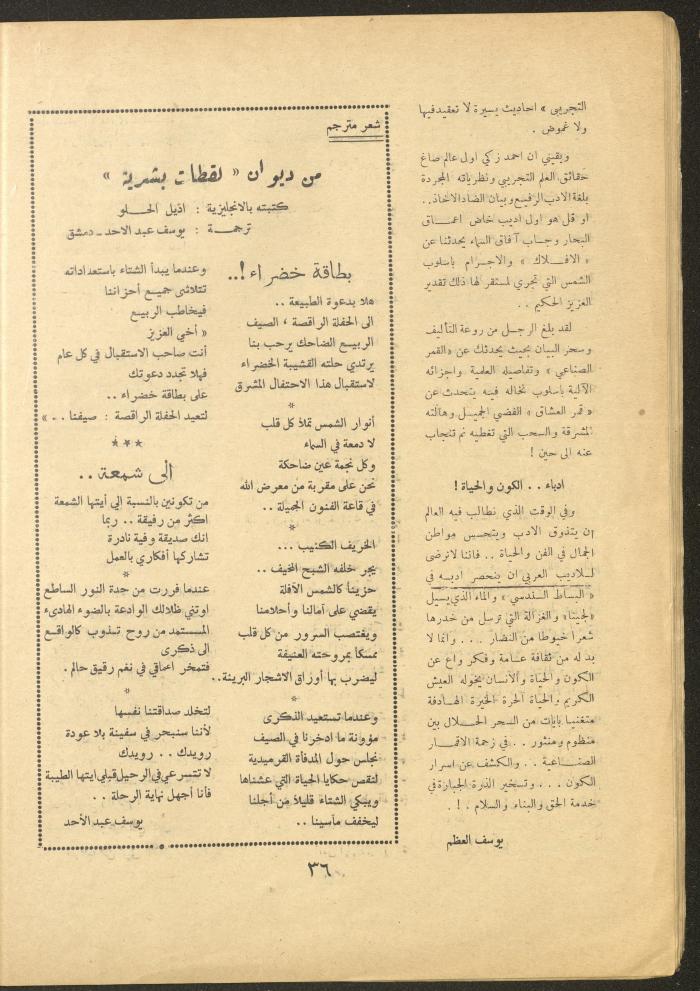 التجريبي » احاديث يسيرة لا تعقيد فيها
ولا غموض .
ويقيني ان احمد زكي اول عالم صاغ
حقائق العلم التجريبي ونظرياته المجردة
بلغة الادب الرفيع وبيان الضاد الاخاذ..
او قل هو اول اديب خاض اعماق
البحار وجاب آفاق السماء يحدثنا عن
« الافلاك » والاجرام باسلوب
الشمس التي تجري لمستقر لها ذلك تقدير
العزيز الحكيم ..
لقد بلغ الرجل من روعة التأليف
وسحر البيان بحيث يحدثك عن «القمر
الصناعي » وتفاصيله العلمية واجزائه
الآلية باسلوب تخاله فيه يتحدث عن
« قمر العشاق » الفضي الجميل وهالته
المشرقة والسحب التي تغطيه ثم تنجاب
عنه الى حين !
ادباء .. الكون والحياة !
وفي الوقت الذي نطالب فيه العالم
ان يتذوق الادب ويتحسس مواطن
الجمال في الفن والحياة .. فاننا لا نرضى
للاديب العربي ان ينحصر ادبه في
« البساط السندسي » والماء الذي يسيل
«لجينا» والغزالة التي ترسل من خدرها
شعرا خيوطا من النضار ... وانما لا
بد له من ثقافة عامة وفكر واع عن
الكون والحياة والانسان يخوله العيش
الكريم والحياة الحرة الخيرة الهادفة
متغنيا بايات من السحر الحلال بين
منظوم ومنثور .. في زحمة الاقمار
الصناعية .. والكشف عن اسرار
الكون ... وتسخير الذرة الجبارة في
خدمة الحق والبناء والسلام . ! .
يوسف العظم
شعر مترجم
من ديوان « لقطات بشرية »
كتبته بالانجليزية : اذيل الحلو
ترجمة : يوسف عبد الاحد ـ دمشق
بطاقة خضراء !..
هلا بدعوة الطبيعة ..
الى الحفلة الراقصة ، الصيف
الربيع الضاحك يرحب بنا
يرتدي حلته القشيبة الخضراء
لاستقبال هذا الاحتفال المشرق
*
أنوار الشمس تملأ كل قلب
لا دمعة في السماء
وكل نجمة عين ضاحكة
نحن على مقربة من معرض الله
في قاعة الفنون الجميلة ..
*
الخريف الكئيب ...
يجر خلفه الشبح المخيف ..
حزيناً كالشمس الآفلة
يقضي على آمالنا وأحلامنا
ويغتصب السرور من كل قلب
ممسكاً بمروحته العنيفة
ليضرب بها أوراق الاشجار البريئة..
*
وعندما تستعيد الذكرى
مؤونة ما ادخرنا في الصيف
نجلس حول المدفأة القرميدية
لنقص حكايا الحياة التي عشناها
ويبكي الشتاء قليلاً من أجلنا
ليخفف مآسينا ..
وعندما يبدأ الشتاء باستعداداته
تتلاشى جميع أحزاننا
فيخاطب الربيع
« أخي العزيز
أنت صاحب الاستقبال في كل عام
فهلا تجدد دعوتك
على بطاقة خضراء ..
لتعيد الحفلة الراقصة : صيفنا .. »
***
الى شمعة ..
من تكونين بالنسبة الي أيتها الشمعة
اكثر من رفيقة .. ربما
انك صديقة وفية نادرة
تشاركها أفكاري بالعمل
*
عندما فررت من حدة النور الساطع
اوتني ظلالك الوادعة بالضوء الهادىء
المستمد من روح تذوب كالواقع
الى ذكرى
فتمخر اعماقي في نغم رقيق حالم .
*
لتخلد صداقتنا نفسها
لأننا سنبحر في سفينة بلا عودة
رويدك .. رويدك
لا تتسرعي في الرحيل قبلي ايتها الطيبة
فأنا أجهل نهاية الرحلة ..
يوسف عبد الأحد
٣٦